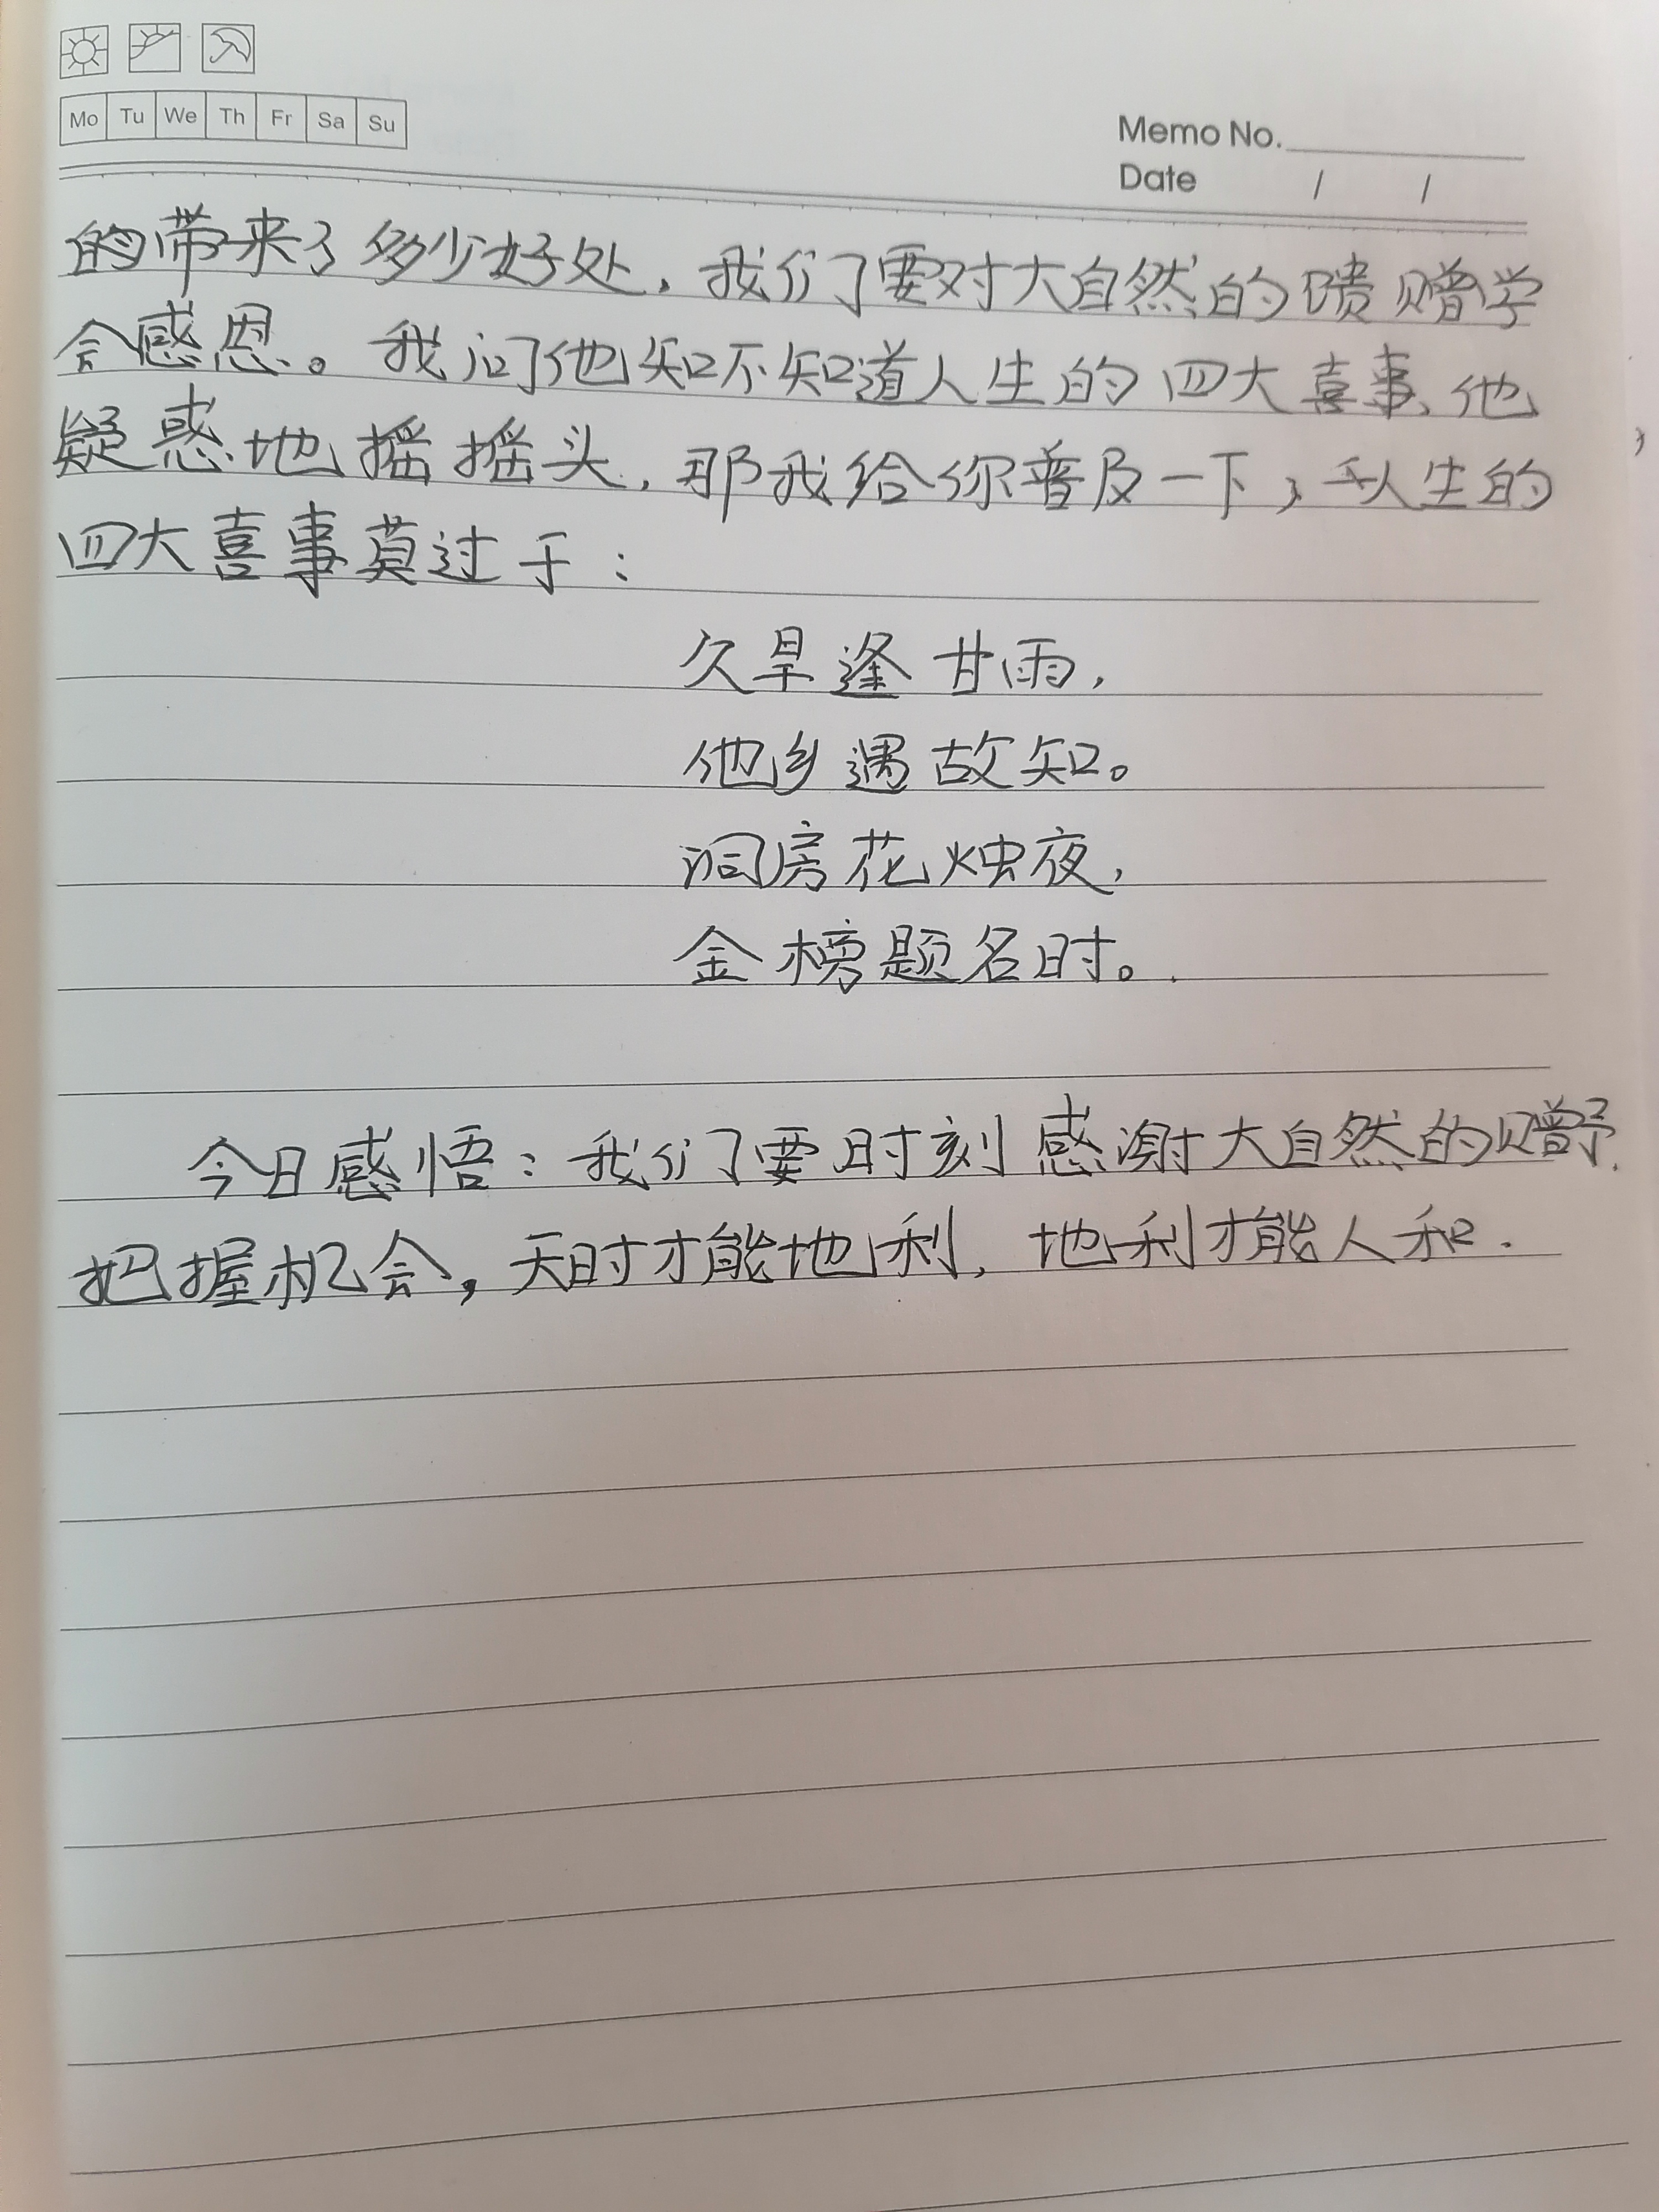 Mo Tu We Th Fr Sa Su
Memo No.
Date / /
的带来了多少好处，我们要对大自然的馈赠学
会感恩。我问他知不知道人生的四大喜事、他
疑惑地摇摇头，那我给你普及一下，人生的
四大喜事莫过于：
久旱逢甘雨，
他乡遇故知。
洞房花烛夜，
金榜题名时。
今日感悟：我们要时刻感谢大自然的赠予，
把握机会，天时才能地利，地利才能人和.